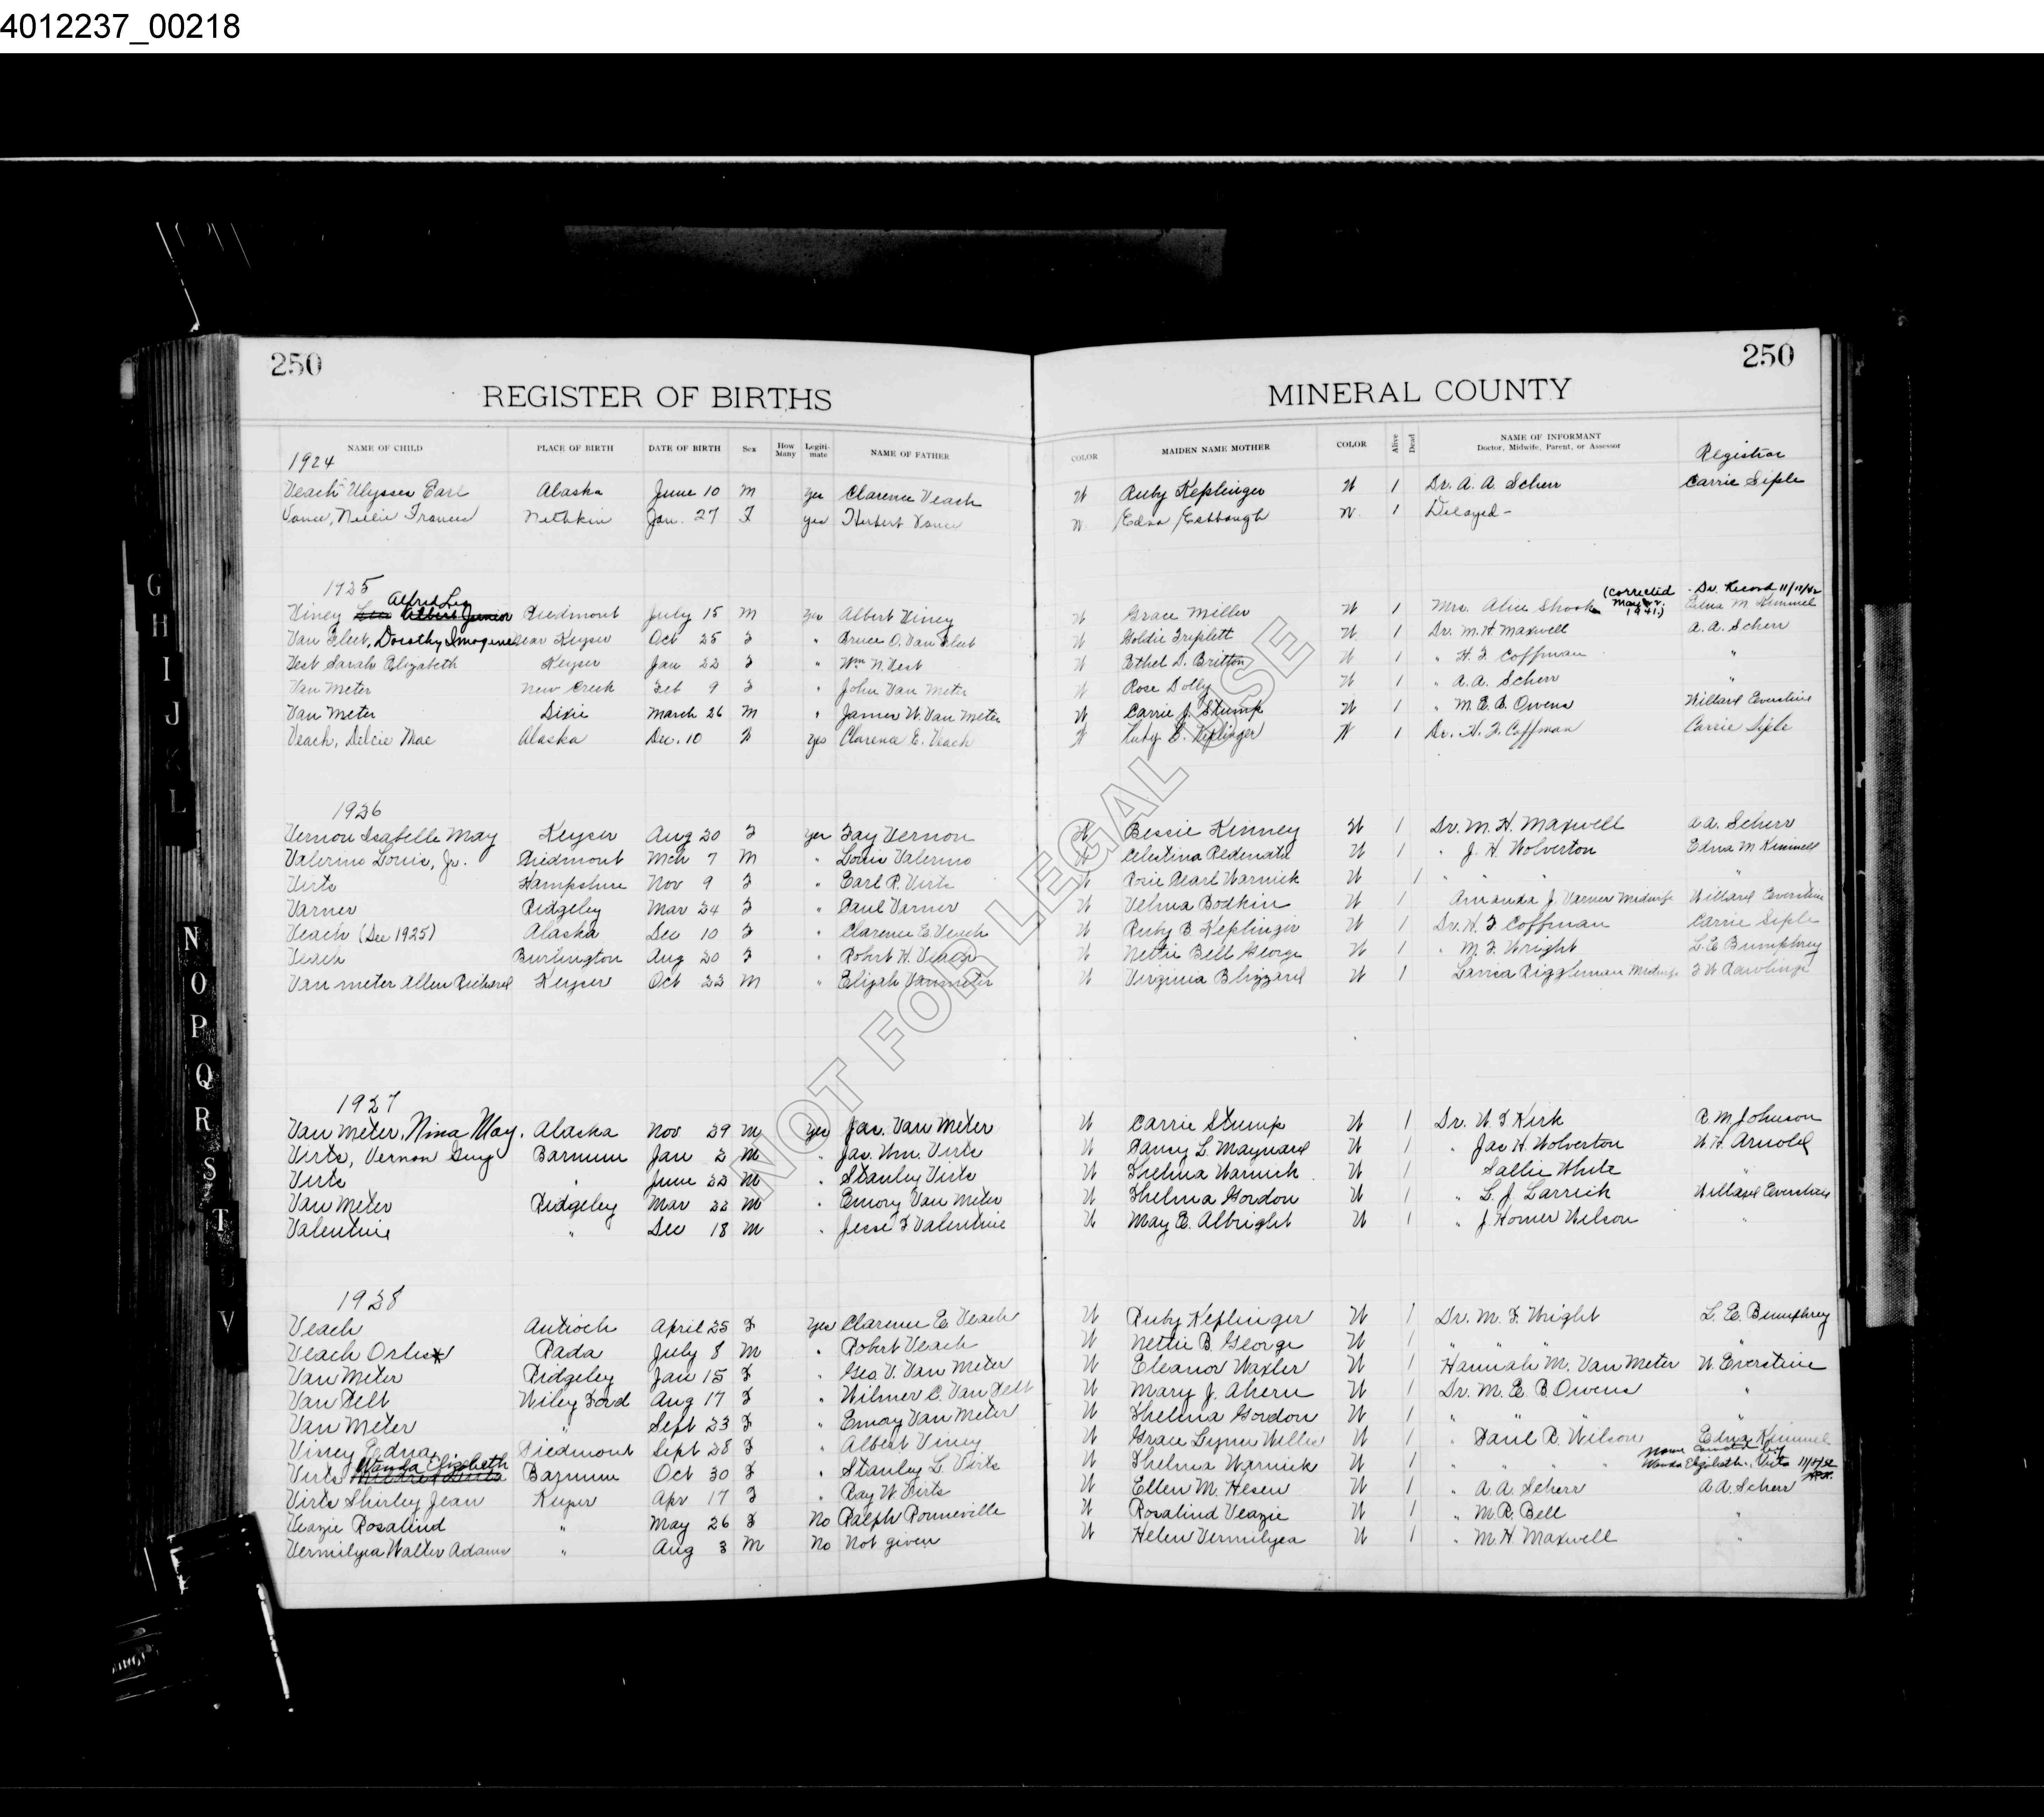 4012237_00218
250
250
REGISTER OF BIRTHS
MINERAL COUNTY
NAME OF CHILD PLACE OF BIRTH DATE OF BIRTH Sex How Many Legiti-mate NAME OF FATHER COLOR MAIDEN NAME MOTHER COLOR Alive Dead NAME OF INFORMANT Doctor, Midwife, Parent, or Assessor Registrar
1924
Veach Ulysses Earl Alaska June 10 M yes Clarence Veach W Ruby Keplinger W 1 Dr. A. A. Scherr Carrie Siple
Vance, Nellie Frances Nethkin Jan. 27 F yes Herbert Vance W. Edna W. 1 Delayed -
1925
Alfred Leo (Corrected May 1941) Dr. Record 11/18/42
Viney Lee Albert Junior Piedmont July 15 M Yes Albert Viney W Grace Miller W 1 Mrs. Alice Shook Edna M Kimmel
Van Fleet, Dorothy Imogene near Keyser Oct 25 F " O. Van Fleet W Goldie Triplett W 1 Dr. M. H Maxwell A. A. Scherr
Vest Sarah Elizabeth Keyser Jan 22 F " Wm N. Vest W Ethel D. Britton W 1 " H. F. Coffman "
Van Meter New Creek Feb 9 F " John Van Meter W Rose Dolly W 1 " A. A. Scherr "
Van Meter Dixie March 26 M " James W. Van Meter W Carrie J. Stump W 1 " M. E. B. Owens Willard Everstine
Veach, Delcie Mae Alaska Dec. 10 F yes Clarence E. Veach W Ruby E. Keplinger W 1 Dr. H. F. Coffman Carrie Siple
1926
Vernon Isabelle May Keyser Aug 20 F yes Fay Vernon W Bessie Kinney W 1 Dr. M. H. Maxwell A. A. Scherr
Valerino Louis, Jr. Piedmont Mch 7 M " Louis Valerino W Celestina W 1 " J. H. Wolverton Edna M Kimmell
Virts Hampshire Nov 9 F " Earl R. Virts W Rosie Pearl Warnick W 1 " " " "
Varner Ridgeley Mar 24 F " Paul Varner W Velma Bodkin W 1 Amanda J. Varner Midwife Willard Everstine
Veach (Dec 1925) Alaska Dec 10 F " Clarence E. Veach W Ruby B Keplinger W 1 Dr. H. F Coffman Carrie Siple
Veach Burlington Aug 20 F " Robert W. Veach W Nettie Bell George W 1 " M. F. Wright L. E. Bumphrey
Van meter Allen Richard Keyser Oct 22 M " Elijah Vanmeter W Virginia Blizzard W 1 Riggleman Midwife F W Rawlings
1927
Van Meter, Nina May. Alaska Nov 29 M Yes Jas. Van Meter W Carrie Stump W 1 Dr. W. F Kirk R. M. Johnson
Virts, Vernon Guy Barnum Jan 2 M " Jas. Wm. Virts W Nancy L. Maynard W 1 " Jas H. Wolverton W. H. Arnold
Virts " June 22 M " Stanley Virts W Thelma Warnick W 1 Sallie White "
Van Meter Ridgeley Mar 22 M " Emory Van Meter W Thelma Gordon W 1 " L. J. Larrick Willard Everstine
Valentine " Dec 18 M " Jesse F Valentine W May E. Albright W 1 " J. Homer Wilson "
1928
Veach Antioch April 25 F Yes Clarence E. Veach W Ruby Keplinger W 1 Dr. M. F. Wright L. E. Bumphrey
Veach Rada July 8 M " Robert Veach W Nettie B. George W 1 " " " "
Van Meter Ridgeley Jan 15 F " Geo. V. Van Meter W Eleanor Waxler W 1 Hannah M. Van Meter W. Everstine
Van Pelt Wiley Ford Aug 17 F " Wilmer C. Van Pelt W Mary J. Ahern W 1 Dr. M. E. B Owens "
Van Meter " Sept 23 F " Emory Van Meter W Thelma Gordon W 1 " " " "
Viney Edna Piedmont Sept 28 F " Albert Viney W Grace W 1 " Paul R. Wilson Edna Kimmel
Wanda Elizabeth name corrected by
Virts Mildred Barnum Oct 30 F " Stanley L. Virts W Thelma Warnick W 1 " " " " Wanda Elizabeth Virts 11/18/52
Virts Shirley Jean Keyser Apr 17 F " Ray W Virts W Ellen M. Hesen W 1 " A. A. Scherr A. A. Scherr
Veazie Rosalind " May 26 F No Ralph Ronneville W Rosalind Veazie W 1 " M. R. Bell "
Vermilyea Walter Adams " Aug 3 M No Not given W Helen Vermilyea W 1 " M. H. Maxwell "
NOT FOR LEGAL USE
G
H
I
J
K
L
N
O
P
Q
R
S
T
U
V